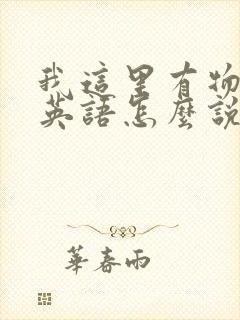 我這里有物
英語怎麼說
華春雨